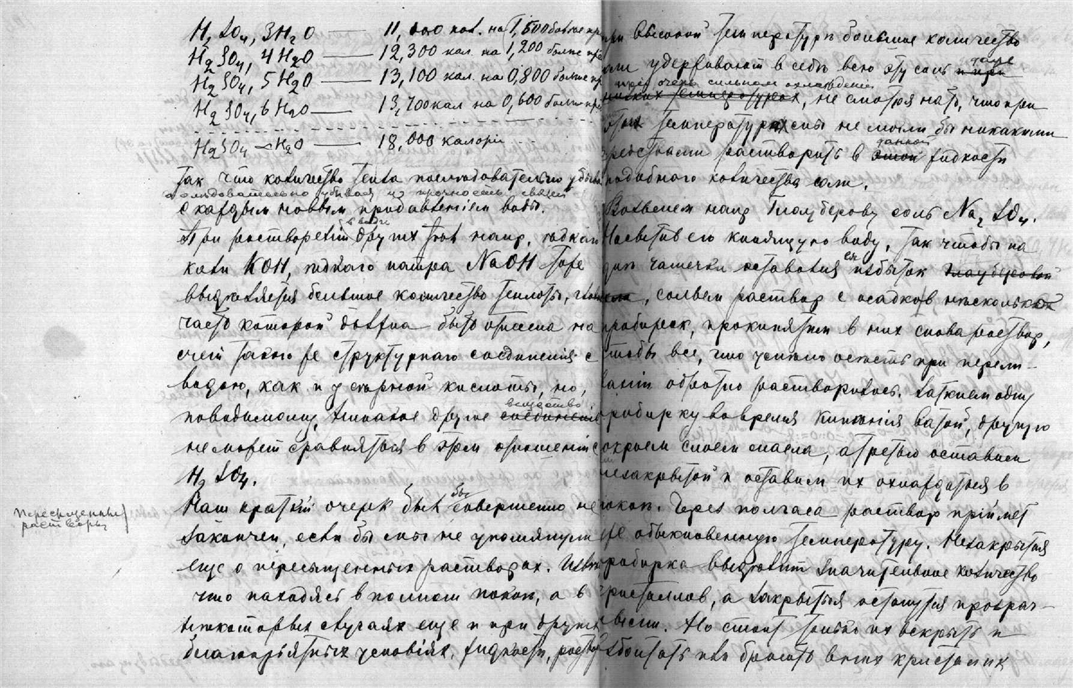 H2SO4, 3H2O — 11,000 кал. на 1,500 больше пр
H2SO4, 4H2O — 12,300 кал. на 1,200 больше пр
H2SO4, 5H2O — 13,100 кал. на 0,800 больше пр
H2SO4, 6H2O — 13,700 кал. на 0,600 больше пр
H2SO4 — H2O — 18,000 калорій
Так что количество тепла последовательно убыва
последовательно убывая и прочность связи
с каждым новым прибавленіем воды.
При раствореніи других тел напр. едкаго
в воде
кали KOH, едкаго натра NaOH тоже
выделяется большое количество теплоты,
часть которой должна быть отнесена на
счет такого же структурнаго соединенія с
водою, как и у серной кислоты, но,
повидимому, никакое другое соединение
вещество
не может сравняться в этом отношеніи с
H2SO4.
Пересыщенные
растворы
Наш краткій очерк был бы совершенно не
закончен, если бы мы не упомянули
еще о пересыщенных растворах.
что находясь в полном покое, а в
некоторых случаях еще и при других
благопріятных условіях, жидкости, раство
при высокой температуре большее количество
соли удерживают в себе всю эту соль и при
также
при очень сильном охлаждении
низких температурах, не смотря на то, что при
этих температурах мы не могли бы никакими
средствами растворить в этой жидкости
данной
подобнаго количества соли.
Возьмем напр. Глауберову соль Na2SO4.
Насытив ею кипящую воду, так чтобы на
дне чашечки оставался ея избыток глауберовой
соли, сольем раствор с осадков в несколько
пробирок, прокипятим в них снова раствор,
чтобы все, что успело осесть при перели-
ваніи обратно растворилось. Заткнем одну
пробирку во время кипенія ватой, другую
покроем слоем масла, а третью оставим
незакрытой и оставим их охлаждаться в
покое. Через полчаса раствор приймет
уже обыкновенную температуру. Незакрытая
пробирка выделит значительное количество
кристаллов, а закрытыя останутся прозрач-
ными. Но стоит только их вскрыть и
взболтать или бросить в них кристалик